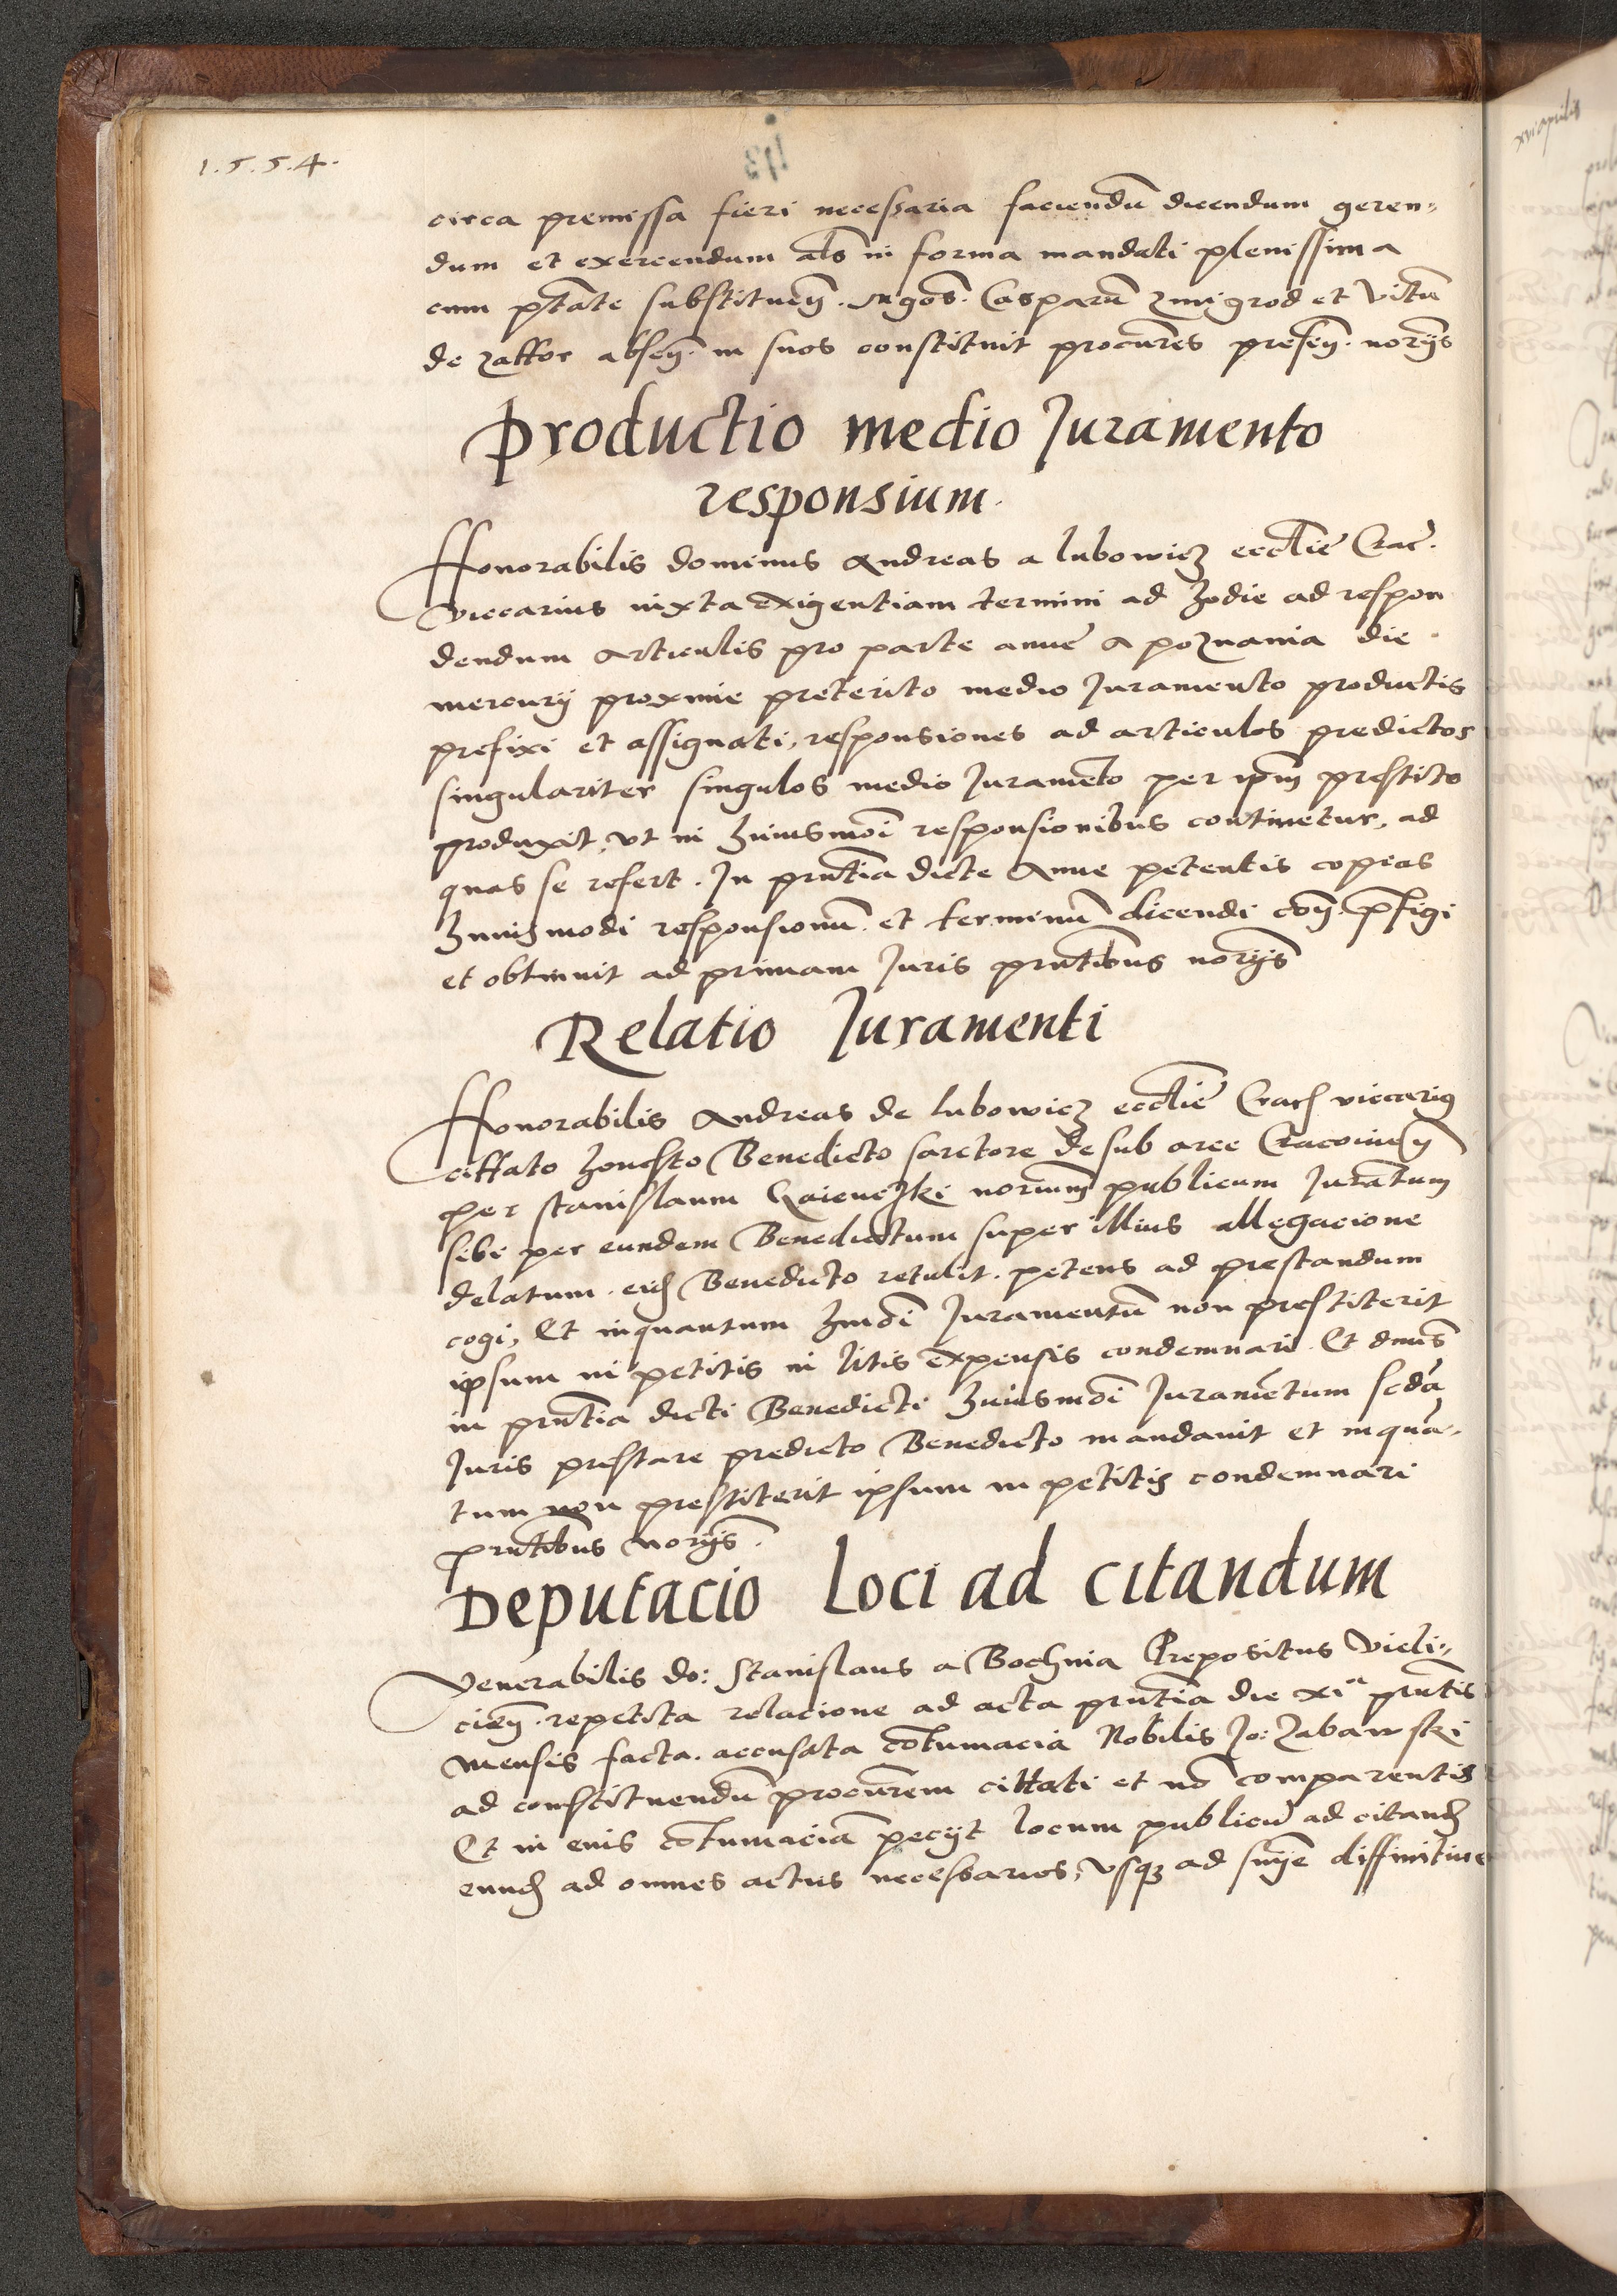 1.5.5.4.
circa premissa fieri necessaria faciendū dicendum geren„
dum et exercendum als in forma mandati plenissima
cum ptate substituen. mgos. Casparū Zmigrod et Vitū
de Zattor absen. in suos constituit procures presen. norijs
Productio medio Juramento
responsium.
Honorabilis dominus Andreas a lubowicz eccłie Crac.
viccarius iuxta exigentiam termini ad hodie ad respon
dendum articulis pro parte anne a poznania die
mercurij proxime preterito medio Juramento productis
prefixi et assignati, responsiones ad articulos predictos
singulariter singulos medio Juramēto per ipm prestito
produxit, vt in huiusmōi responsionibus continetur, ad
quas se refert. In pntia dicte Anne petentis copias
huiusmodi responsionū et terminū dicendi con. pfigi
et obtinuit ad primam Juris pntibus norijs
Relatio Juramenti
Honorabilis Andreas de lubowicz eccłie Crac viccarius
cittato honesto Benedicto sartore de sub arce Cracovien
per stanislaum norium publicum Juratum
sibi per eundem Benedictum super illius allegacione
delatum. eid Benedicto retulit. petens ad prestandum
cogi, Et inquantum hmōi Juramentū non prestiterit
ipsum in petitis in litis expensis condemnari. Et dnus
in pntia dicti Benedicti huiusmōi Juramētum scdā
Juris prestare predicto Benedicto mandauit et inquā„
tum non prestiterit ipsum in petitis condemnari
pntibus norijs.
Deputacio Loci ad citandum
Venerabilis do: Stanislaus a Bochnia Prepositus Vieli„
cien. repetita relacione ad acta pntia die xi pntis
mensis facta. accusata cōtumacia Nobilis Jo: Zabawski
ad constituendū procurem cittati et nō comparentis
Et in eius cōtumaciā pecijt locum publicū ad citand
eund ad omnes actus necessarios, vsq3 ad snije diffinitiue
xvi aprilis